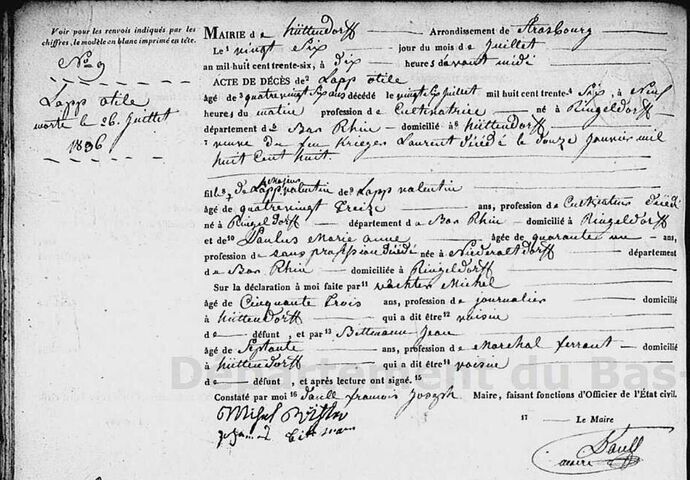 Voir pour les renvois indiqués par les
chiffres, le modèle en blanc imprimé en tête.
N° 9
Lapp otile
morte le 26. Juillet
1836
MAIRIE de hüttendorff Arrondissement de Strasbourg
Le vingt Six jour du mois de Juillet
an mil huit cent trente-six, à dix heures devant midi
ACTE DE DÉCÈS de² Lapp otile
âgé de³ quatrevingt Six ans décédé le vingt Six juillet mil huit cent trente-Six, à Neuf
heures du matin profession de Cultivatrice né à Ringeldorff
département de Bas Rhin domicilié à hüttendorff
veuve de feu Krieger Laurent décédé le douze janvier mil
huit Cent huit.
fille de Lapp valentin de⁹ Lapp valentin
âgé de quatrevingt Treize ans, profession de Cultivateur
né à Ringeldorff département de Bas Rhin domicilié à Ringeldorff
et de¹⁰ Paulus Marie anne âgée de quarante un ans,
profession de sans profession décédé née à Niederaltdorff département
de Bas Rhin domiciliée à Ringeldorff
Sur la déclaration à moi faite par¹¹ Wachter Michel
âgé de Cinquante Trois ans, profession de journalier domicilié
à hüttendorff qui a dit être¹² voisin
de défunt, et par¹³ Bittmann Jean
âgé de Septante ans, profession de Marechal ferrant domicilié
à hüttendorff qui a dit être¹⁴ voisin
de défunt, et après lecture ont signé.¹⁵
Constaté par moi¹⁶ Paull francois Joseph Maire, faisant fonctions d'Officier de l'État civil.
17 Le Maire
Paull
maire
Département du Bas-